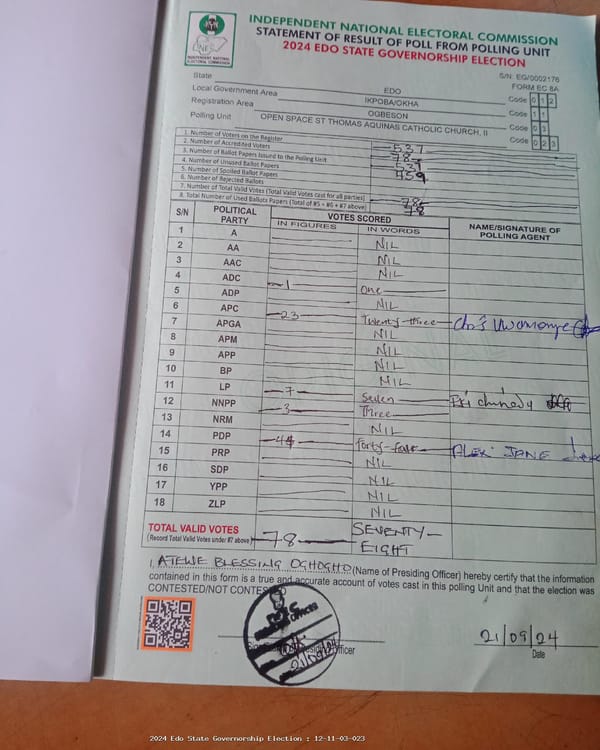 INDEPENDENT NATIONAL ELECTORAL COMMISSION
STATEMENT OF RESULT OF POLL FROM POLLING UNIT
2024 EDO STATE GOVERNORSHIP ELECTION
INDEPENDENT NATIONAL
ELECTORAL COMMISSION
S/N: EG/0002176
FORM EC 8A
State EDO Code 0 1 2
Local Government Area IKPOBA/OKHA Code 1 1
Registration Area OGBESON Code 0 3
Polling Unit OPEN SPACE ST THOMAS AQUINAS CATHOLIC CHURCH, II Code 0 2 3
1. Number of Voters on the Register 537
2. Number of Accredited Voters 78
3. Number of Ballot Papers Issued to the Polling Unit 537
4. Number of Unused Ballot Papers 459
5. Number of Spoiled Ballot Papers
6. Number of Rejected Ballots
7. Number of Total Valid Votes (Total Valid Votes cast for all parties) 78
8. Total Number of Used Ballots Papers (Total of #5 + #6 + #7 above) 78
S/N POLITICAL PARTY VOTES SCORED NAME/SIGNATURE OF POLLING AGENT
IN FIGURES IN WORDS
1 A NIL
2 AA NIL
3 AAC NIL
4 ADC 1 One
5 ADP NIL
6 APC 23 Twenty-three
7 APGA NIL
8 APM NIL
9 APP NIL
10 BP NIL
11 LP 7 Seven
12 NNPP 3 Three
13 NRM NIL
14 PDP 44 Forty-four ALEX JANE
15 PRP NIL
16 SDP NIL
17 YPP NIL
18 ZLP NIL
TOTAL VALID VOTES 78 SEVENTY-EIGHT
(Record Total Valid Votes under #7 above)
I, ATEWE BLESSING OGHOGHO (Name of Presiding Officer) hereby certify that the information
contained in this form is a true and accurate account of votes cast in this polling Unit and that the election was
CONTESTED/NOT CONTESTED
21/09/24
21/09/24
Date
2024 Edo State Governorship Election : 12-11-03-023